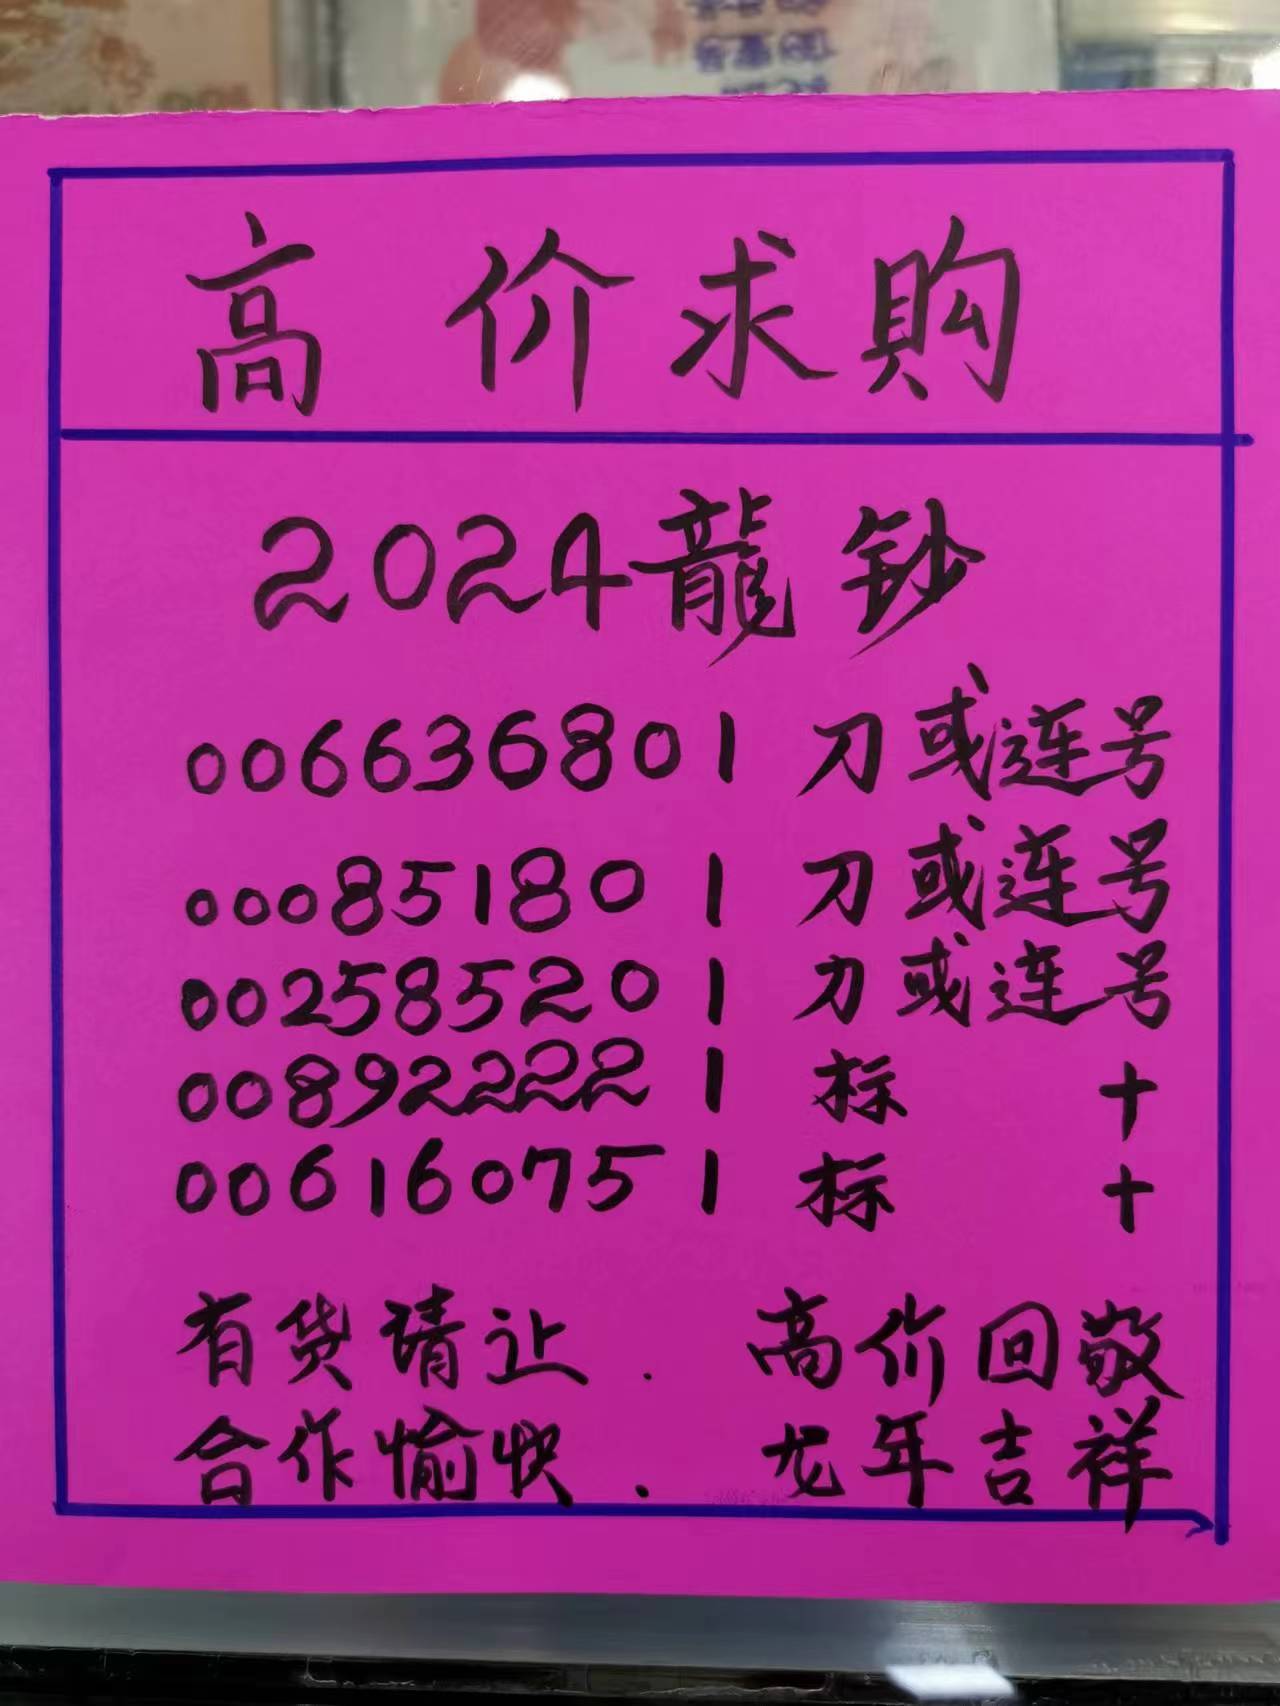 高价求購
2024龍鈔
006636801 刀或连号
000851801 刀或连号
002585201 刀或连号
008922221 标 十
006160751 标 十
有货请让. 高价回敬
合作愉快. 龙年吉祥